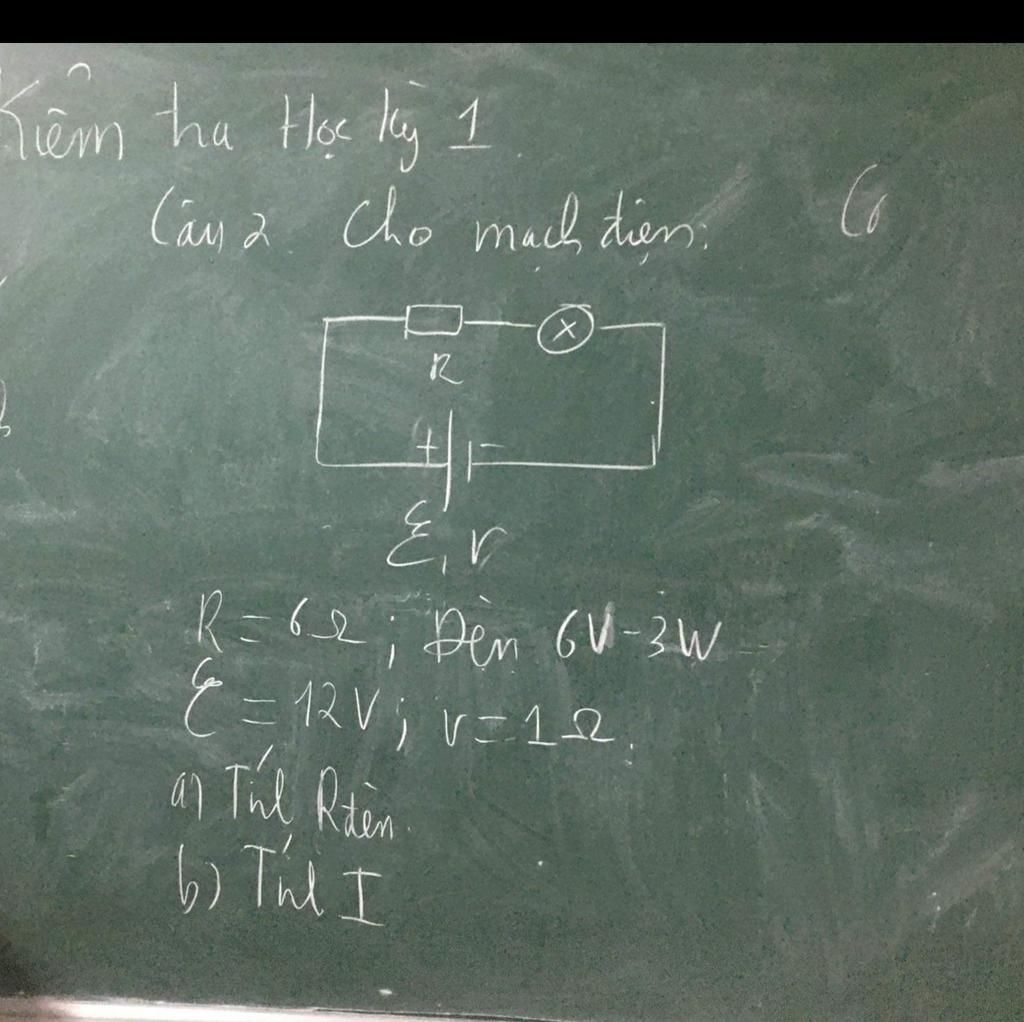 Kiểm tra Học kỳ 1.
Câu 2. Cho mạch điện:
R
+ -
ℰ, r
R = 6Ω; Đèn 6V-3W
ℰ = 12V; r = 1Ω.
a) Tính Rđèn.
b) Tính I